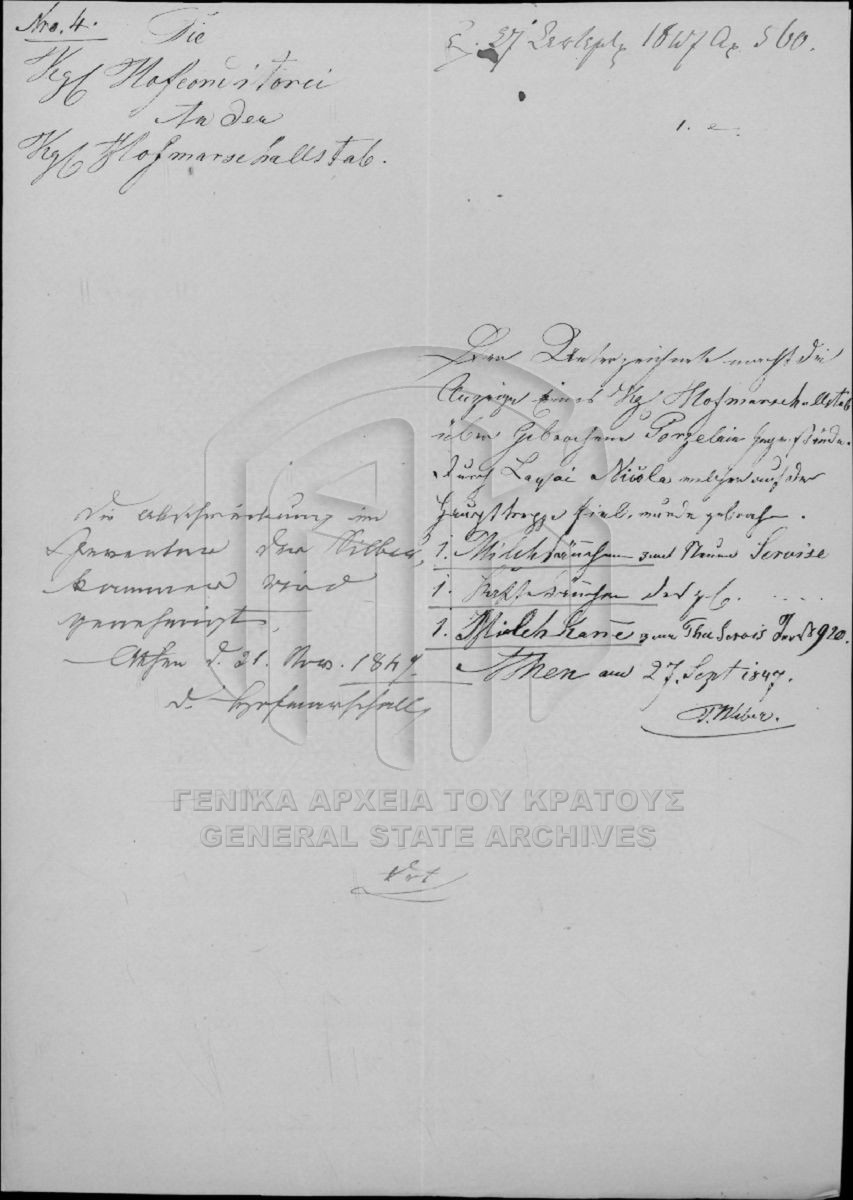 Nro. 4.
Die
Kgl Hofconditorei
An den
Kgl Hofmarschallstab.
27 1847 Αρ. 560.
Der Unterzeichnete macht die
Anzeige Einem Kg Hofmarschallstab
über Gebrochene Porzelain
durch Laquai Nicola welcher auf der
Haupttreppe fiel, wurde gebroch.
1. Milchkännchen zum Neuen Servise
1. Kaffekännchen desgl.
1. Milch Kanne zum Thee Servis 920.
Athen am 27. Sept 1847.
T. Weber.
Die Abschreibung im
Inventar der Silber
kammer wird
genehmigt.
Athen d. 21. Nov. 1847.
d. Hofmarschall
ΓΕΝΙΚΑ ΑΡΧΕΙΑ ΤΟΥ ΚΡΑΤΟΥΣ
GENERAL STATE ARCHIVES